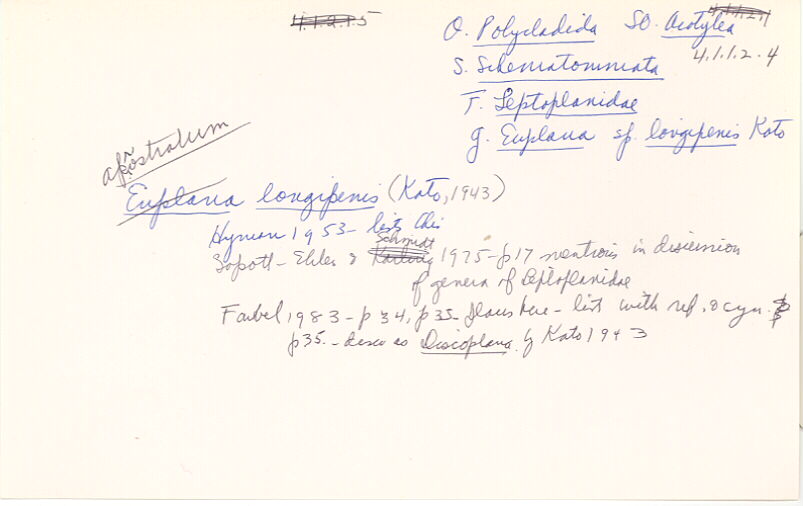 O. Polycladida SO. Acotylea
4.1.1.2.4
S. Schematommata
F. Leptoplanidae
g. Euplana sp. longipenis Kato
Euplana longipenis (Kato, 1943)
Hyman 1953- lists this
Schmidt
Sopott-Ehlers & 1975-p17 mentions in discussion
of genera of Leptoplanidae
Faubel 1983-p34, p35- places here- list with ref. & syn.
p35.- desc as Discoplana by Kato 1943